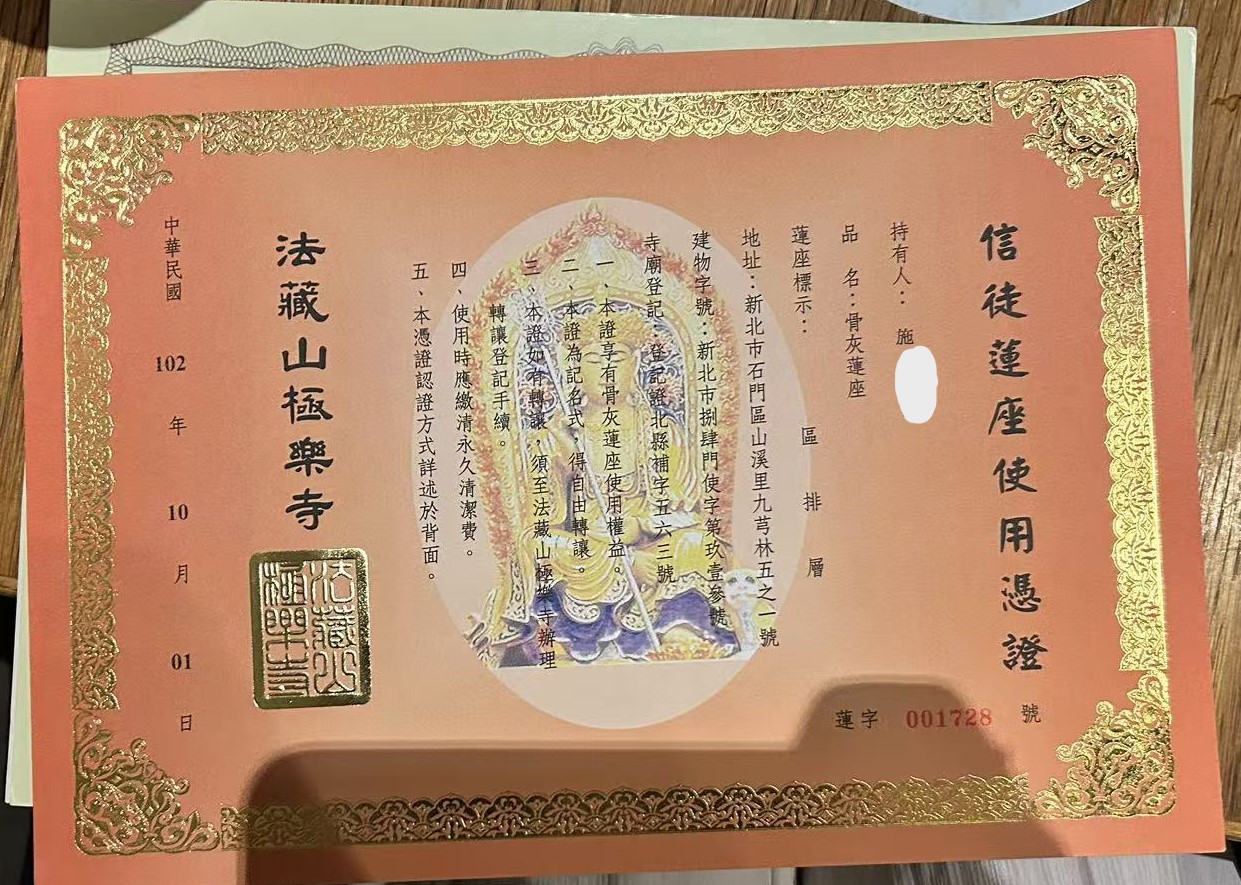 信徒蓮座使用憑證
蓮字 001728 號
持有人：施
品 名：骨灰蓮座
蓮座標示： 區 排 層
地址：新北市石門區山溪里九芎林五之一號
建物字號：新北市捌肆門使字第玖壹參號
寺廟登記：登記證北縣補字五六三號
一、本證享有骨灰蓮座使用權益。
二、本證為記名式，得自由轉讓。
三、本證如有轉讓，須至法藏山極樂寺辦理
轉讓登記手續。
四、使用時應繳清永久清潔費。
五、本憑證認證方式詳述於背面。
法藏山極樂寺
法藏山極樂寺
中華民國 102 年 10 月 01 日